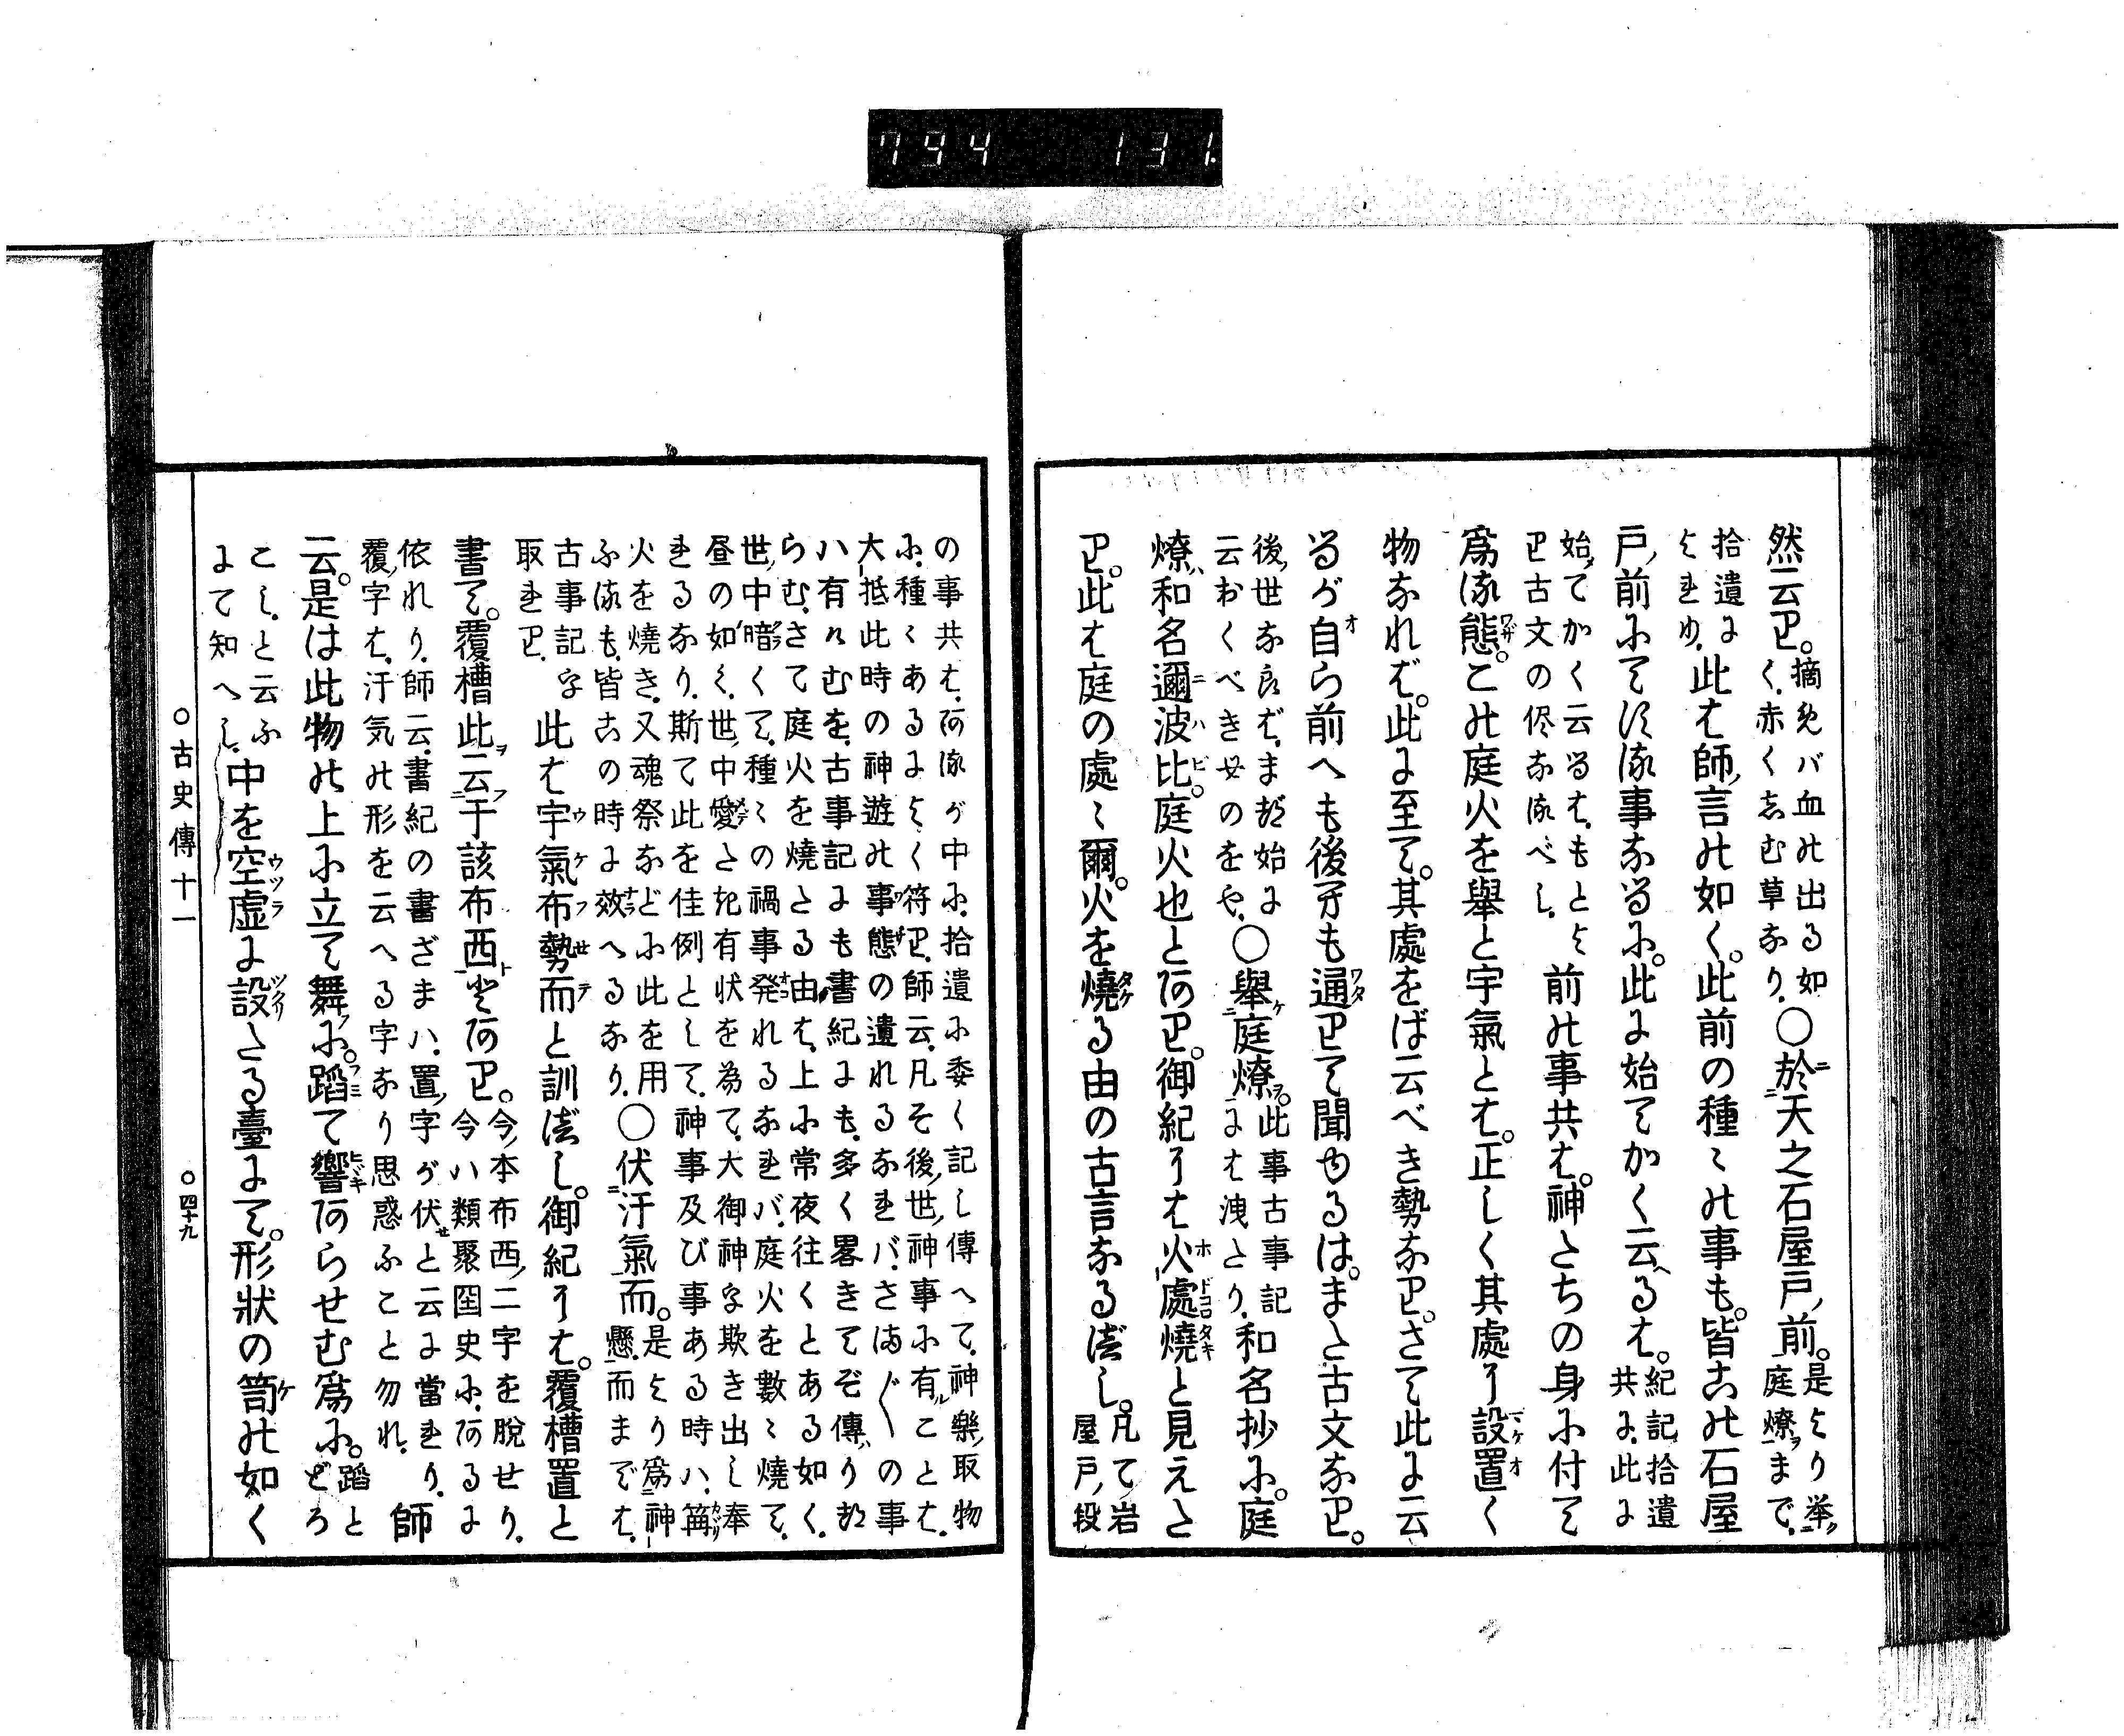 794 131.
然云り。摘めバ血の出る如く、赤くしむ草なり、〇於天之石屋戸ノ前。是より挙庭燎ヲまで、
拾遺によれり、此は師ノ言の如く。此前の種〻の事も。皆此の石屋
戸ノ前にてせる事なるに。此に始てかく云るは。紀記拾遺共に、此に
始てかく云るは、もとより古文の侭なるべし、前の事共は。神たちの身に付て
爲る態。この庭火を擧と宇氣とは。正しく其處に設置く
物なれば。此に至て。其處をば云べき勢なり。さて此に云
るが自ら前へも後方も通りて聞ゆるは。また古文なり。
後ノ世ならば、まづ始に云おくべきものをや、〇擧庭燎ヲ。此事古事記には洩たり、和名抄に。庭
燎、和名邇波比。庭火也とあり。御紀には火處燒と見えた
り。此は庭の處〻爾。火を燒る由の古言なるべし。凡て岩屋戸ノ段
の事共は、あるが中に、拾遺に委く記し傳へて、神樂ノ取物
に、種〻あるによく符り、師云、凡そ後ノ世ノ神事に有ルことは、
大抵此時の神遊の事態の遺れるなれバ、さまざまの事
ハ有けむを、古事記にも書紀にも、多く畧きてぞ傳りけ
らむ、さて庭火を燒たる由は、上に常夜往くとある如く、
世ノ中暗くて、種〻の禍事発れるなれバ、庭火を數〻燒て、
昼の如く、世ノ中愛たき有状を為て、大御神を欺き出し奉
れるなり、斯て此を佳例として、神事及び事ある時ハ、篝
火を燒き、又魂祭などに此を用ふるも、皆この時に效へるなり、〇伏汙氣而。是より爲神懸而までは、
古事記を取れり、此は宇氣布勢而と訓べし。御紀には。覆槽置と
書て。覆槽此云于該布西とあり。今ノ本布西ノ二字を脱せり、今ハ類聚国史に、あるに
依れり、師云、書紀の書ざまハ、置ノ字が伏せと云に當れり、
覆ノ字は、汙気の形を云へる字なり思惑ふこと勿れ、師
云。是は此物の上に立て舞に。蹈て響あらせむ爲に。蹈とどろ
こし、と云ふにて知へし、中を空虚に設たる臺にて。形狀の笥の如く
〇古史傳十一 〇四十九